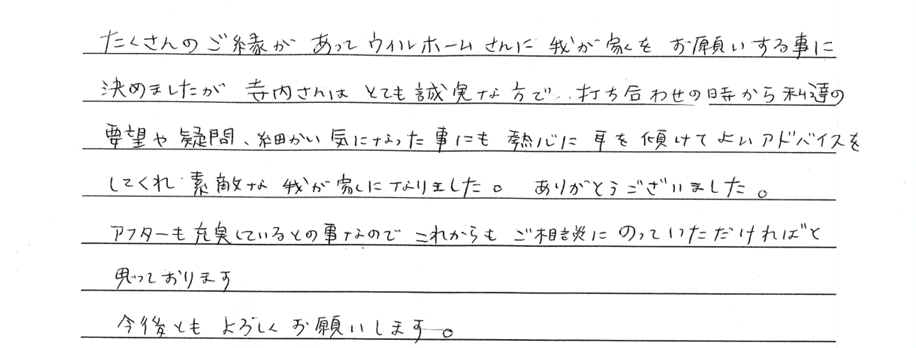 たくさんのご縁があってウィルホームさんに我が家をお願いする事に
決めましたが 寺内さんは とても誠実な方で、打ち合わせの時から私達の
要望や疑問、細かい気になった事にも熱心に耳を傾けてよいアドバイスを
してくれ 素敵な我が家になりました。 ありがとうございました。
アフターも充実しているとの事なので これからも ご相談に のっていただければと
思っております
今後とも よろしくお願いします。